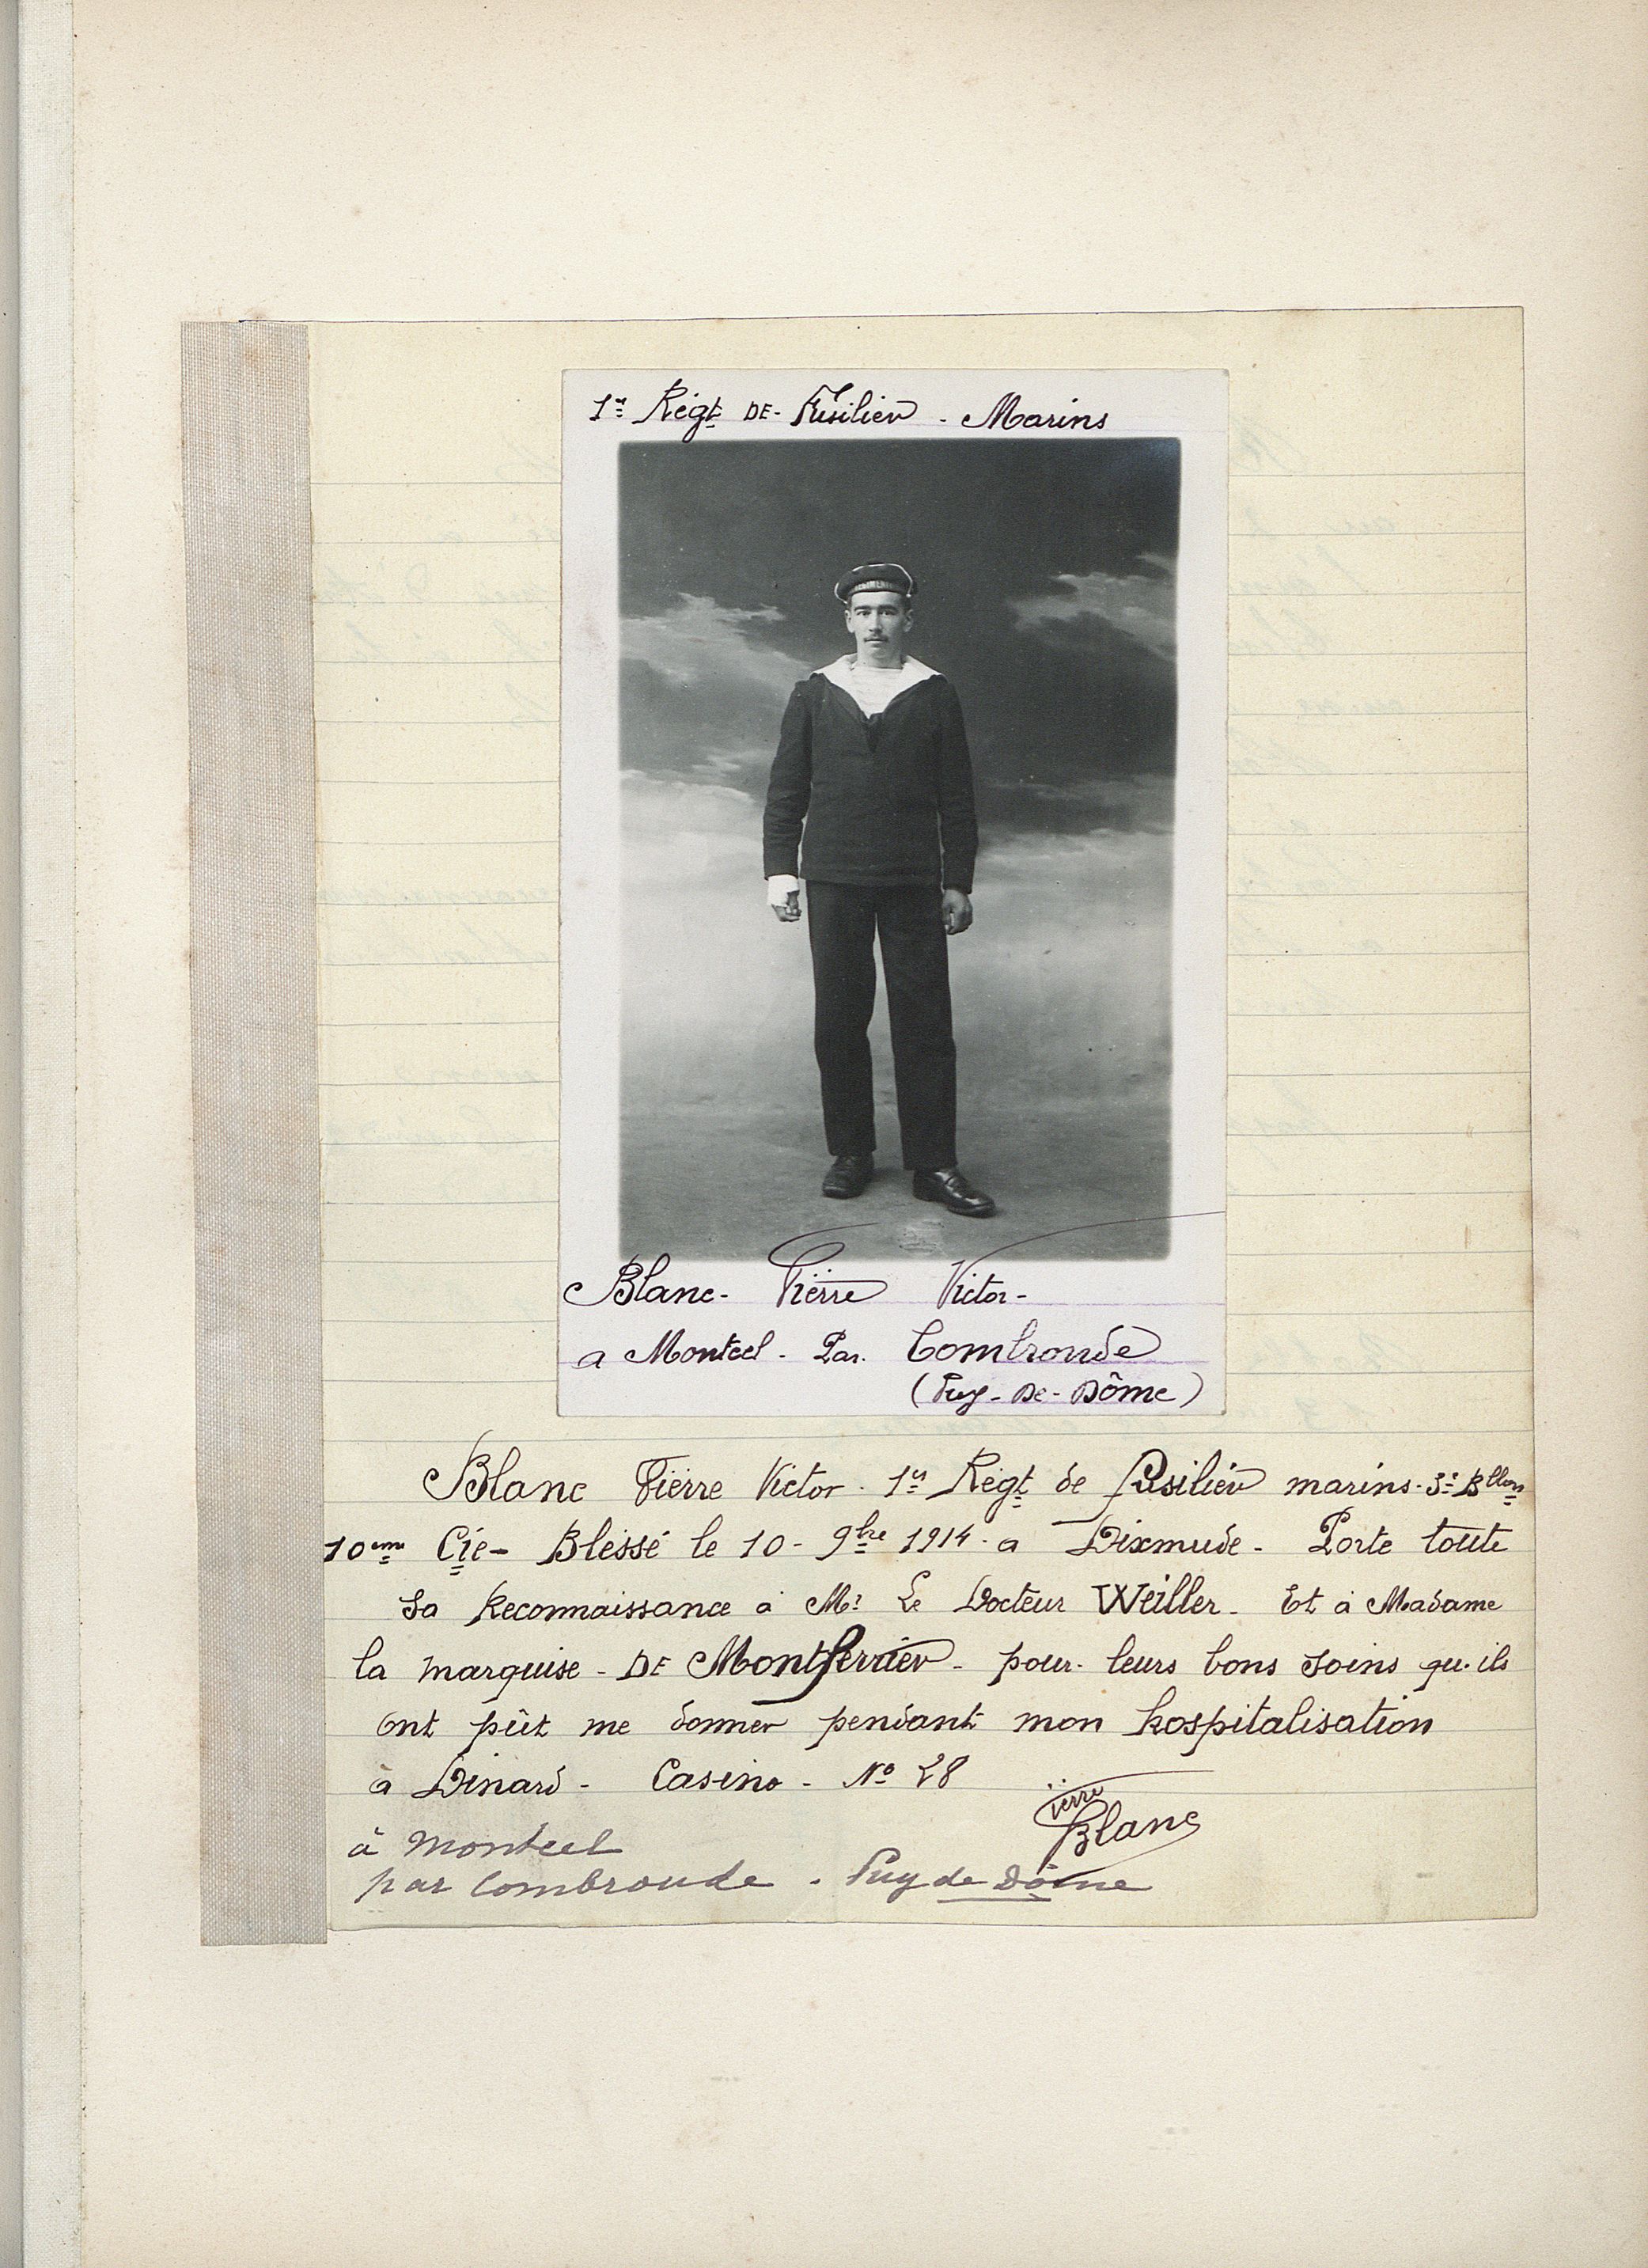 1er Régt DE - Fusilier - Marins
Blanc - Pierre Victor -
a Montcel - Par. Combronde
(Puy - De - Dôme)
Blanc Pierre Victor. 1er Régt de fusilier marins. 3e Bllon
10eme Cie - Blessé le 10 - 9bre 1914 - a Dixmude - Porte toute
sa Reconnaissance à Mr Le Docteur Weiller - Et à Madame
la marquise - DE Montferrier - pour leurs bons soins qu'ils
ont pût me donner pendant mon hospitalisation
à Dinard - Casino - No 28
Pierre
Blanc
à Montcel
par Combronde - Puy de Dôme